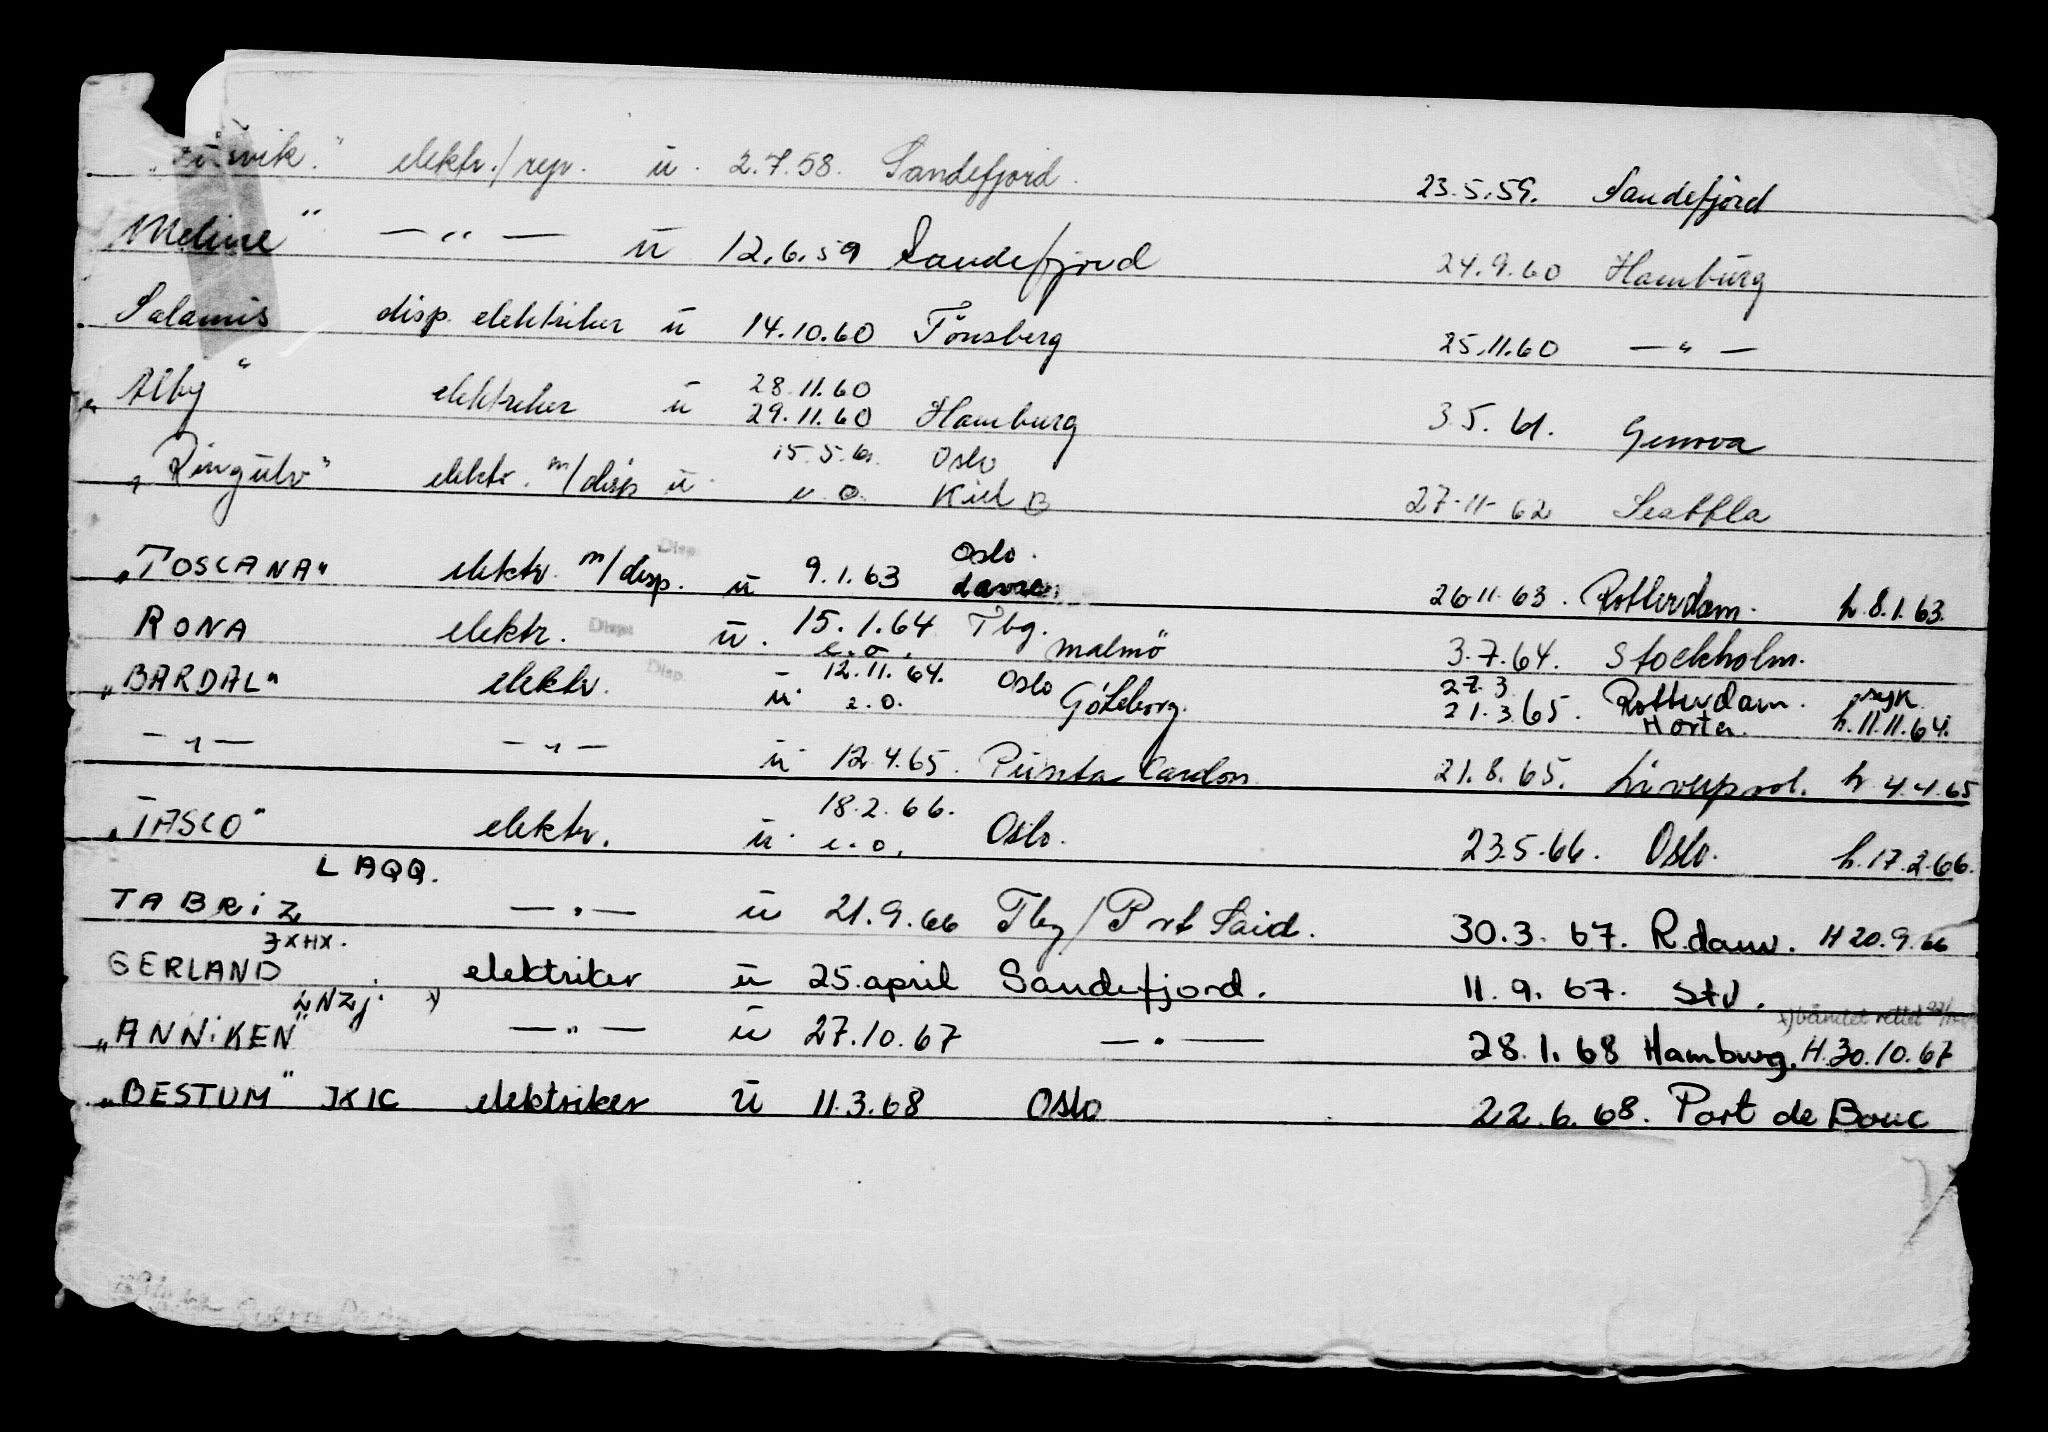 elektr./rep. ū. 2.7.58. Sandefjord. 23.5.59. Sandefjord
Meline" — " — ū 12.6.59 Sandefjord 24.9.60 Hamburg
Salamis disp. elektriker ū 14.10.60 Tönsberg 25.11.60 — " —
Alby" elektriker ū 28.11.60
29.11.60 Hamburg 3.5.61. Genova
"Ringulv" elektr. m/disp ū 15.5.61. Oslo
e.o. Kiel B 27-11-62 Seattla
Disp.
„TOSCANA" elektr. m/disp. ū 9.1.63 Oslo. 26.11.63. Rotterdam. h.8.1.63.
RONA elektr. Disp. ū. 15.1.64 Tbg.
e.o. Malmö 3.7.64. Stockholm.
„BARDAL" elektr. Disp. ū. 12.11.64. Oslo 27.3 Rotterdam. syk
e.o. Göteborg. 21.3.65. Horten. h.11.11.64.
— " — — " — ū 12.4.65. Punta Cardon. 21.8.65. Liverpool. h. 4.4.65
„TASCO" elektr. ū. 18.2.66.
e.o. Oslo. 23.5.66. Oslo. h.17.2.66.
LAQQ.
TABRIZ — " — ū 21.9.66 Tbg/Port Said. 30.3.67. R.dam. H 20.9.66
JXHX.
GERLAND elektriker ū 25.april Sandefjord. 11.9.67.
LNZJ. x) x) båndet rettet
„ANNIKEN" — " — ū 27.10.67 — " — 28.1.68 Hamburg. H.30.10.67
„BESTUM" JXIC elektriker ū 11.3.68 Oslo 22.6.68. Port de Bouc